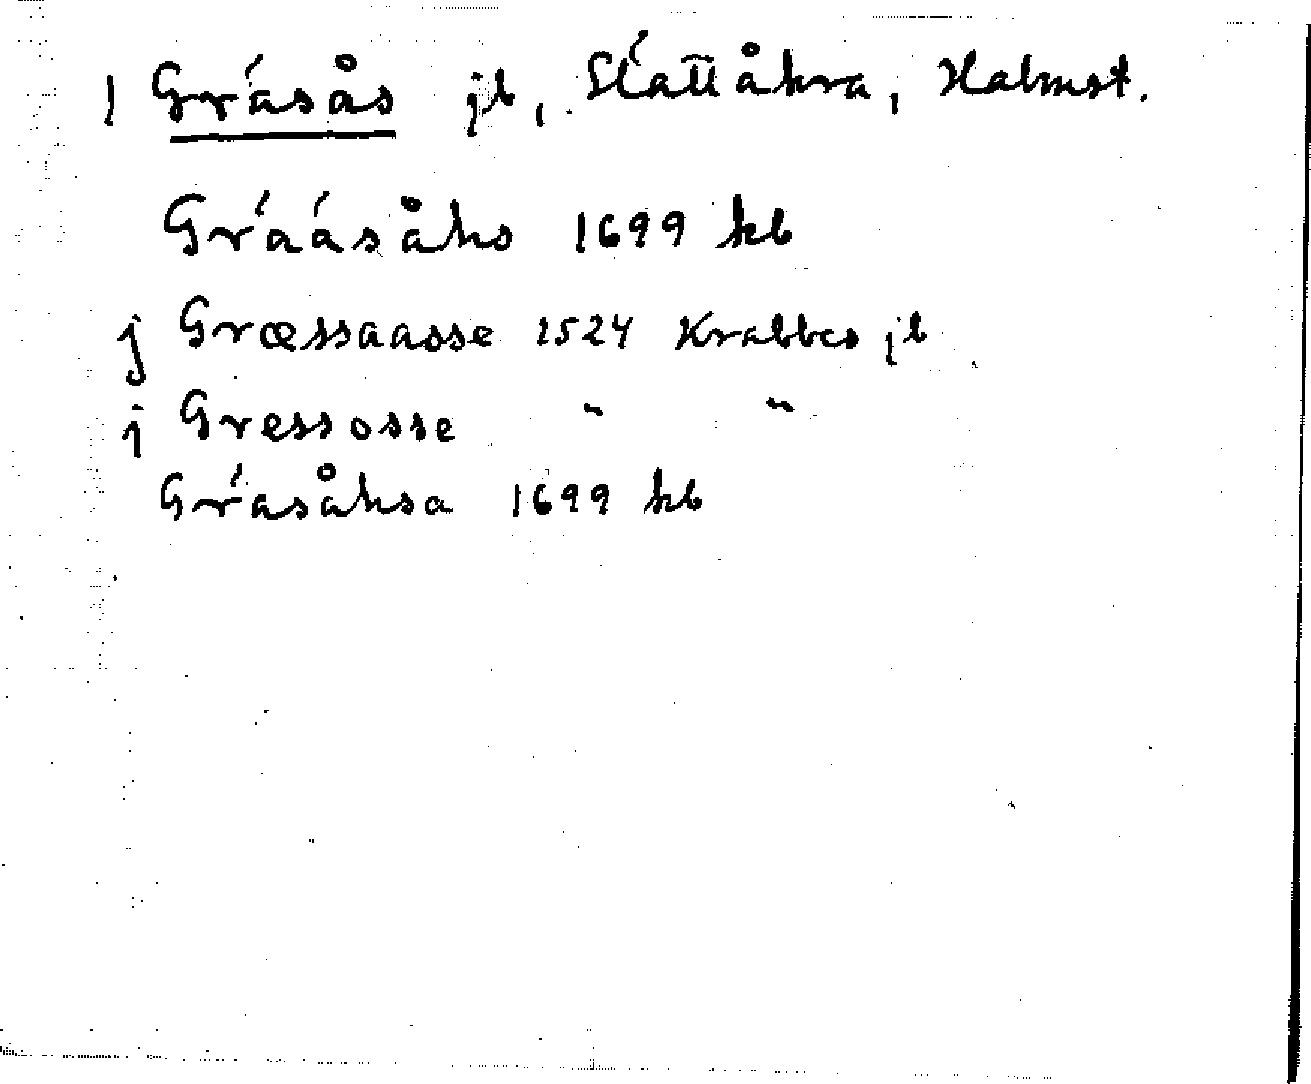 1 Gräsås jb, Slättåkra, Halmst.
Gráásåhs 1699 kb
j Græssaasse 1524 Krabbes jb
j Gressosse " "
Gräsåhsa 1699 kb